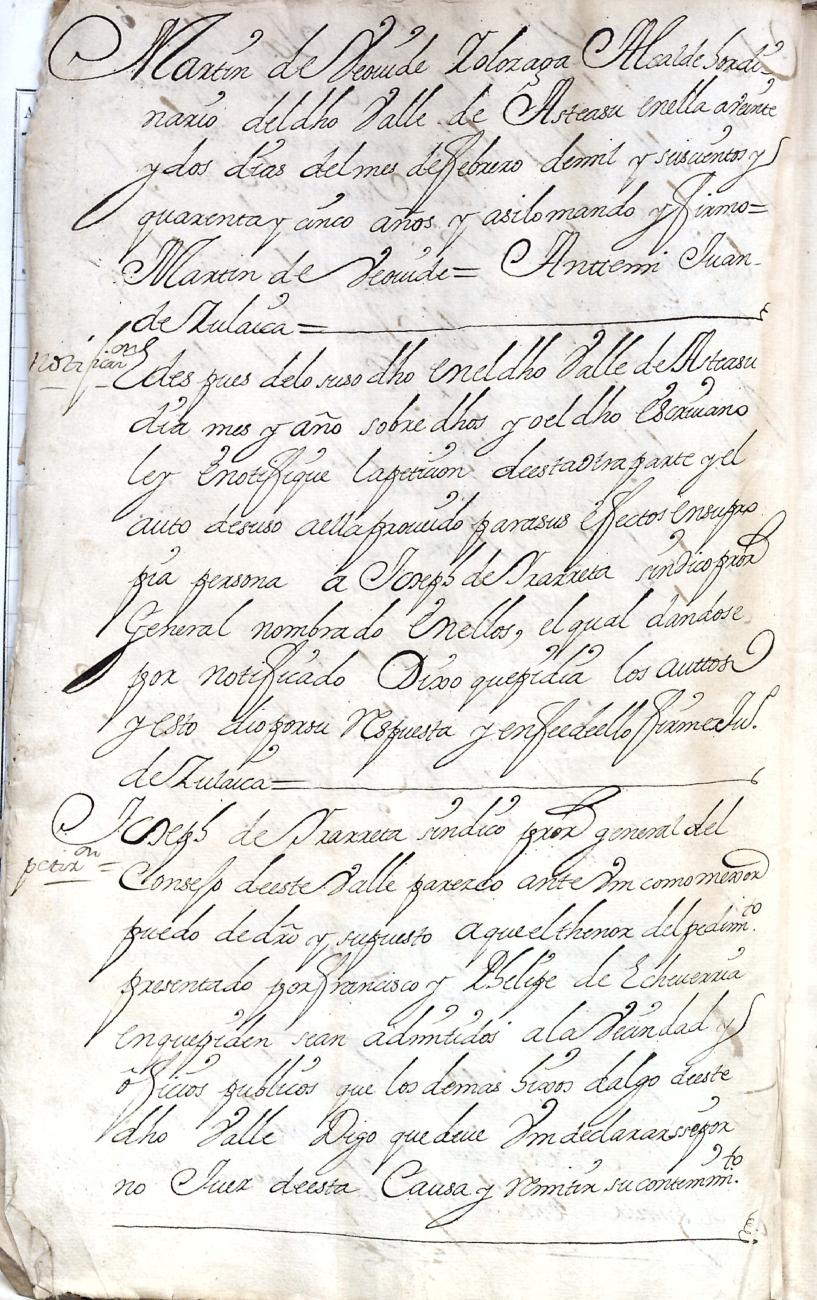 Martin de Veouide Zoloraga Alcalde hordi-
nario del dho Valle de Asteasu enella aveinte
y dos dias delmes de febrero demil y seiscientos y
quarenta y cinco años y asilomando y firmo=
Martin de Veouide= Anttemi Juan-
de Zulaica=
notificaon
E des pues delo suso dho eneldho Valle de Asteasu
dia mes y año sobre dhos yo el dho Escriuano
ley E notifique lapeticion deestaotraparte y el
auto desuso aella proueido parasus Efectos ensupro
pia persona a Joseph de Ararreta sindico pror
General nombrado Enellos, el qual dandose
por notificado Dixo quepidia los auttos
y esto dio porsu Respuesta y enfeedeello firme Ju.
de Zulaica=
Joseph de Ararreta sindico pror general del
petizon=
Consejo deeste Valle parezco ante Vm como mexor
puedo de dro y supuesto aqueelthenor del pedimto.
presentado por francisco y Phelipe de Echeuerria
enquepiden sean admitidos ala Vecindad y
oficios publicos que los demas hixos dalgo deeste
dho Valle Digo que deue Vm declararsse por
no Juez deesta Causa y Remitir su contenimto.